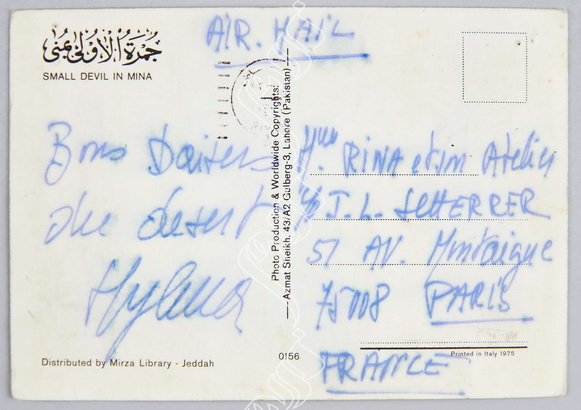 AIR. MAIL
جمرة الأولى بمنى
SMALL DEVIL IN MINA
Bons Baisers
du desert
Photo Production & Worldwide Copyrights:
Azmat Sheikh. 43/A2 Gulberg-3, Lahore (Pakistan)
RINA et son Atelier
c/o J.-L. SCHERRER
51 AV. Montaigne
75008 PARIS
FRANCE
Distributed by Mirza Library - Jeddah
0156
Printed in Italy 1975